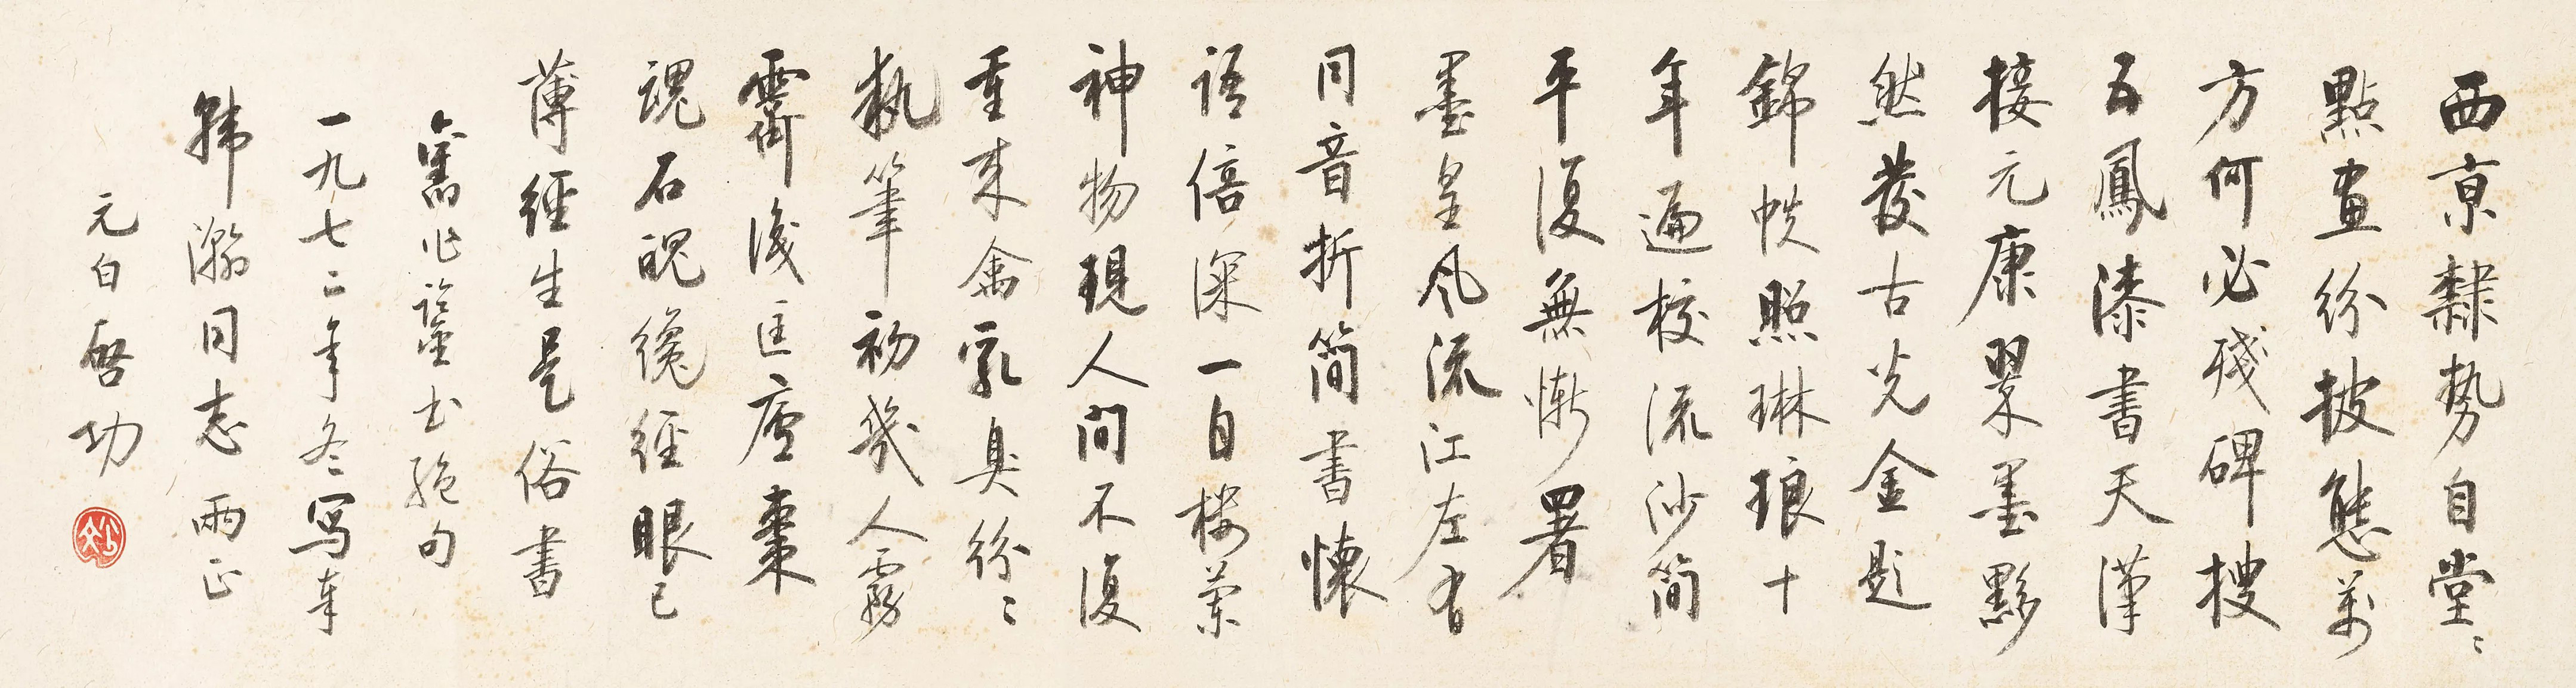 西京隸勢自堂〻
點畫紛披態萬
方何必殘碑搜
五鳳漆書天漢
接元康翠墨黟
然發古光金題
錦帙照琳琅十
年遍校流沙簡
平復無慚署
墨皇風流江左有
同音折簡書懷
語倍深一自樓蘭
神物現人間不復
重來禽乳臭紛〻
執筆初幾人霧
霽識匡廬棗
魂石魄纔經眼已
薄經生是俗書
舊作論書絕句
一九七二年冬寫奉
韓瀚同志兩正
元白啓功